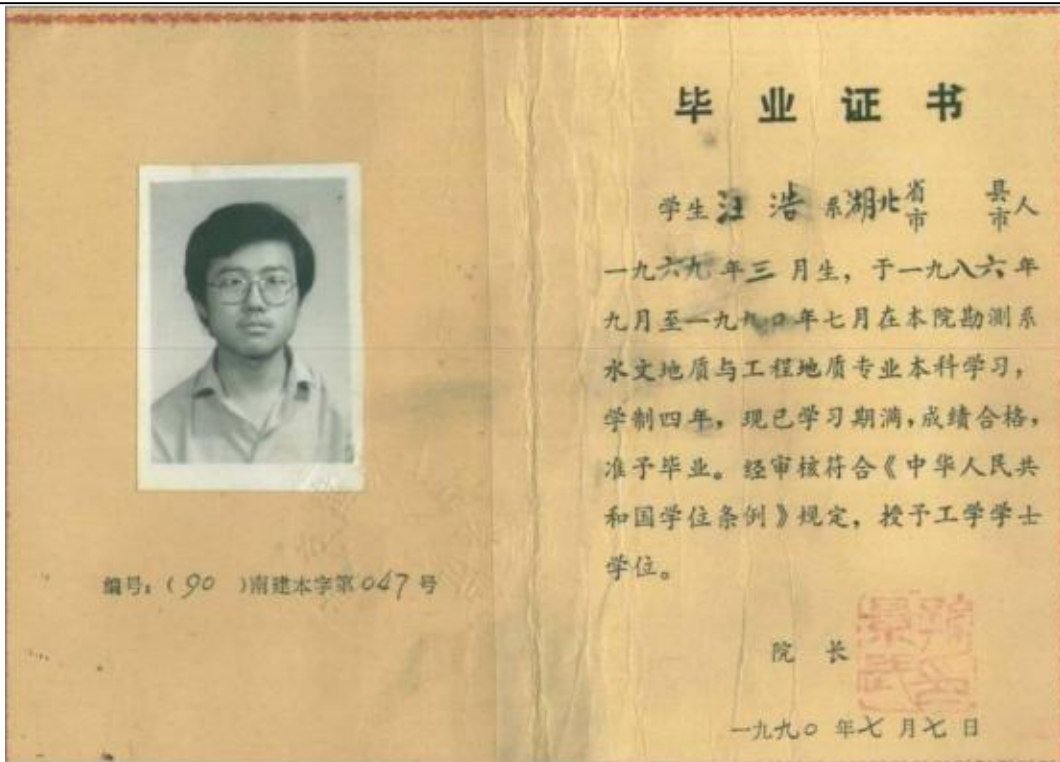 编号：(90 )南建本字第047号
毕业证书
学生汪浩系湖北省市 县市人
一九六九年三月生，于一九八六年
九月至一九九〇年七月在本院勘测系
水文地质与工程地质专业本科学习，
学制四年，现已学习期满，成绩合格，
准予毕业。经审核符合《中华人民共
和国学位条例》规定，授予工学学士
学位。
院长
一九九〇年七月七日